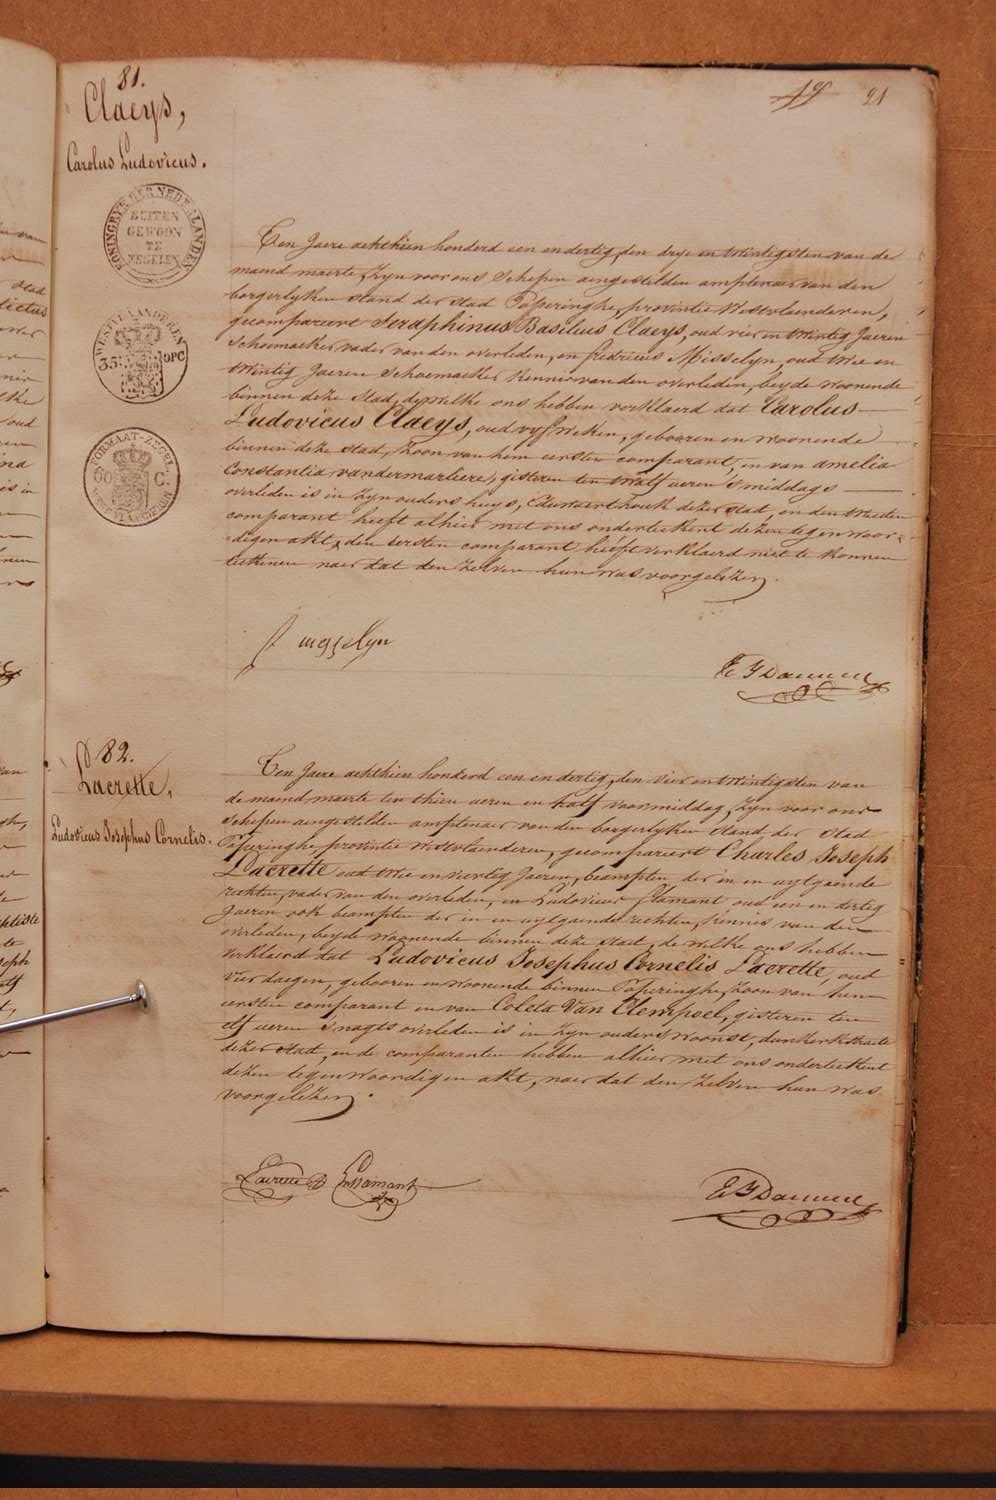 49 21
81.
Claeys,
Carolus Ludovicus.
KONINGRYK DER NEDERLANDEN
BUITEN
GEWOON
TE
ZEGELEN
WEST VLAANDEREN
35 OPC
FORMAAT-ZEGEL
60 C.
WEST VLAANDEREN
Een Jaere achthien honderd een en dertig, den drye en twintigsten van de
maend maerte, Zyn voor ons Schepen aengestelden amptenaer van den
borgerlyken stand der stad Poperinghe, provintie Westvlaenderen,
gecompareert Seraphinus Basilius Claeys, oud vier en twintig Jaeren
Schoemaeker vader van den overleden, en fredricus Misselyn, oud twee en
twintig Jaeren Schoemaeker kennis van den overleden, beyde woonende
binnen deze Stad, dewelke ons hebben verklaerd dat Carolus
Ludovicus Claeys, oud vyf weken, gebooren en woonende
binnen deze stad, Zoon van hem eersten comparant, en van amelia
Constantia vandermarliere, gisteren ten twalf ueren 's middags
overleden is in Zyn ouders huys, Edewaerthoek dezer stad, en den tweeden
comparant heeft alhier met ons onderteekent dezen tegenwoor-
digen akt, den eersten comparant heeft verklaerd niet te konnen
teekenen naer dat den Zelven hun was voorgelezen.
f messelyn
E F Damme
82.
Lacrette,
Ludovicus Josephus Cornelis.
Een Jaere achthien honderd een en dertig, den vier en twintigsten van
de maend maerte ten thien ueren en half voormiddag, Zyn voor ons
Schepen aengestelden amptenaer van den borgerlyken stand, der Stad
Poperinghe, provintie Westvlaenderen, gecompareert Charles Joseph
Lacrette oud twee en veertig Jaeren, beampten der in en uytgaende
rechten, vader van den overleden, en Ludovicus flamant oud een en dertig
Jaeren ook beampten der in en uytgaende rechten, kennis van den
overleden, beyde woonende binnen deze stad, de welke ons hebben
verklaerd dat Ludovicus Josephus Cornelis Lacrette, oud
vier daegen, gebooren en woonende binnen Poperinghe, Zoon van hem
eersten comparant en van Coleta Van Elempoel, gisteren ten
elf ueren 's nagts overleden is in Zyn ouders woonst, dunkerkstraete
dezer stad, en de comparanten hebben alhier met ons onderteekent
dezen tegenwoordigen akt, naer dat den Zelven hun was
voorgelezen.
Lacrette
L flamant
E F Damme